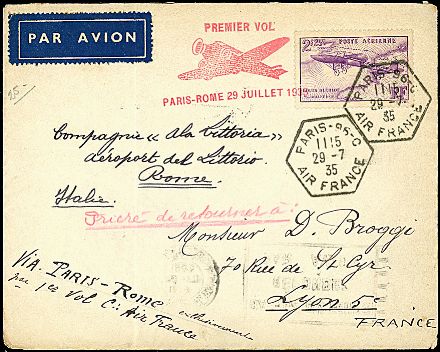 PAR AVION
PREMIER VOL
PARIS-ROME 29 JUILLET 1935
POSTE AERIENNE
PARIS-96-C
1115
29-7
35
AIR FRANCE
PARIS-96-C
1115
29-7
35
AIR FRANCE
25-
Compagnie "ala Littoria"
Aéroport del Littorio
Rome
Italie.
Prière de retourner à :
Monsieur D. Broggi
70 Rue de St Cyr
Lyon 5e
FRANCE
Via. PARIS-ROME
par 1er Vol Cie Air France